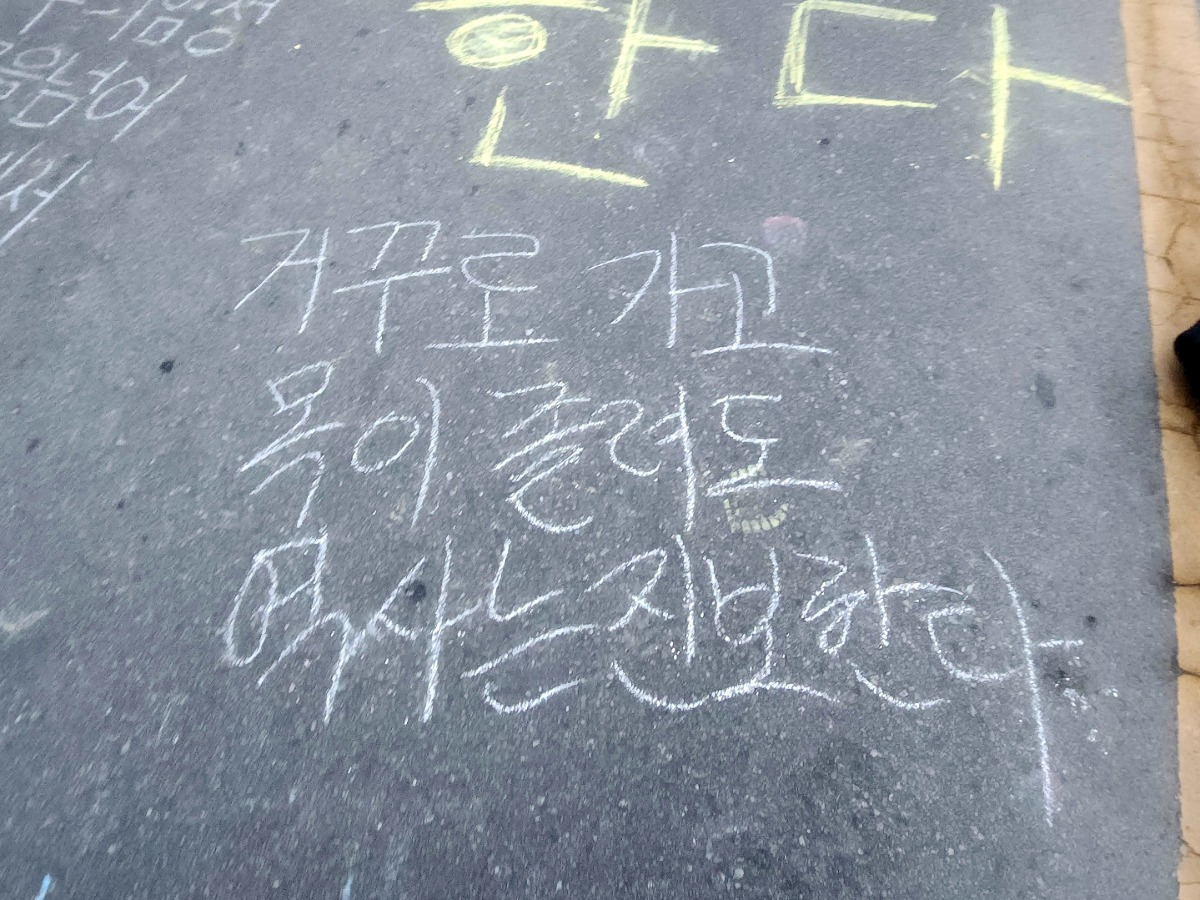 한다
거꾸로 가고
목이 졸려도
역사는 진보한다